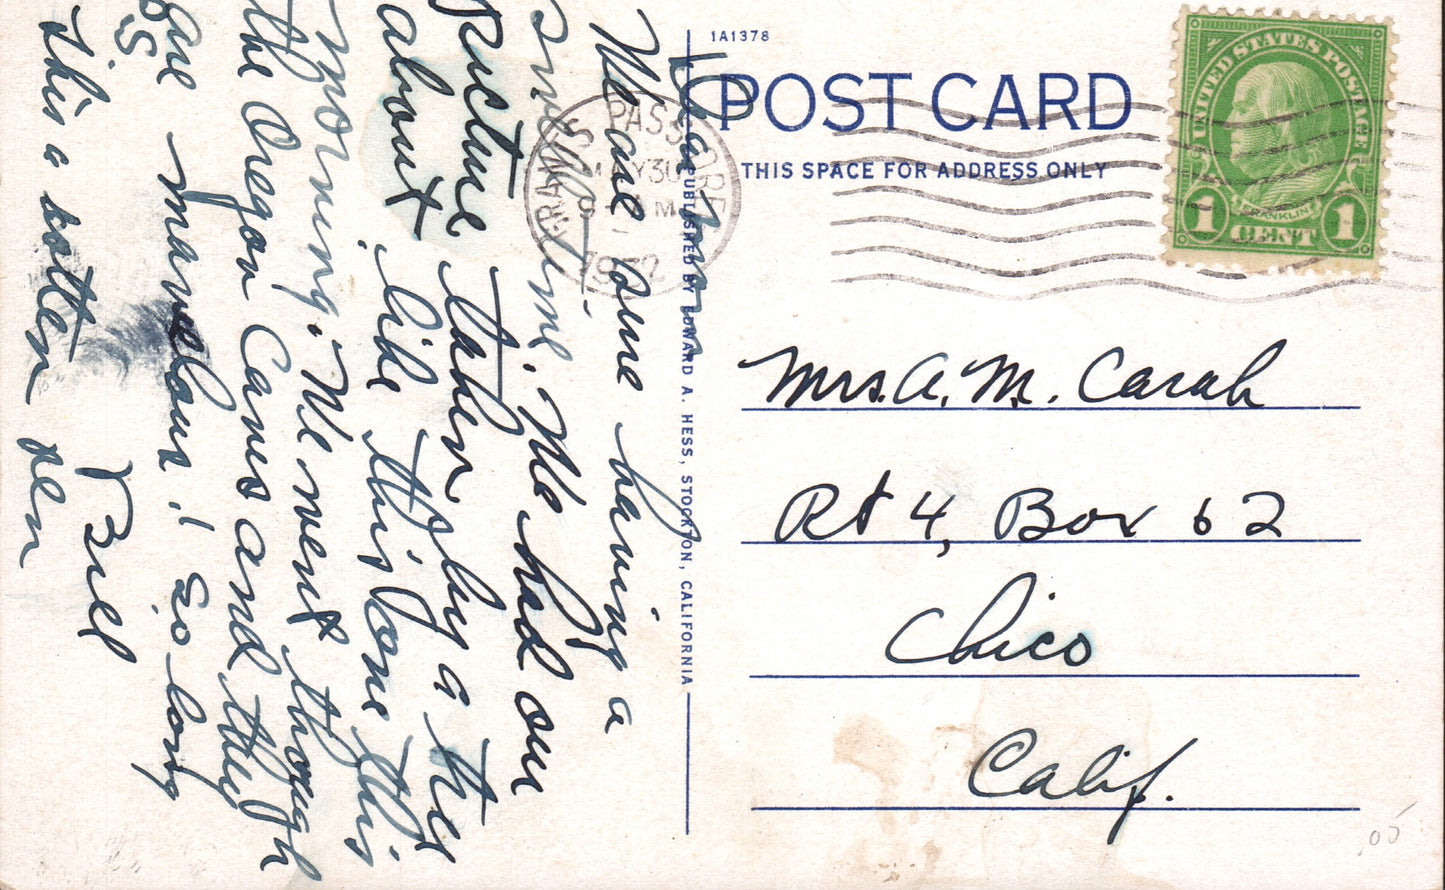 1A1378
POST CARD
THIS SPACE FOR ADDRESS ONLY
UNITED STATES POSTAGE
FRANKLIN
1 CENT 1
GRANTS PASS ORE.
MAY 30
9 M
1932
Dear Mom
We are sure having a
swell time. We had our
Picture taken by a tree
about like this one this
morning. We went through
the Oregon Caves and they
are marvelous! So long
PS Buel
This a rotten pen
PUBLISHED BY EDWARD A. HESS, STOCKTON, CALIFORNIA
Mrs. A. M. Carah
Rt 4, Box 62
Chico
Calif.
.05